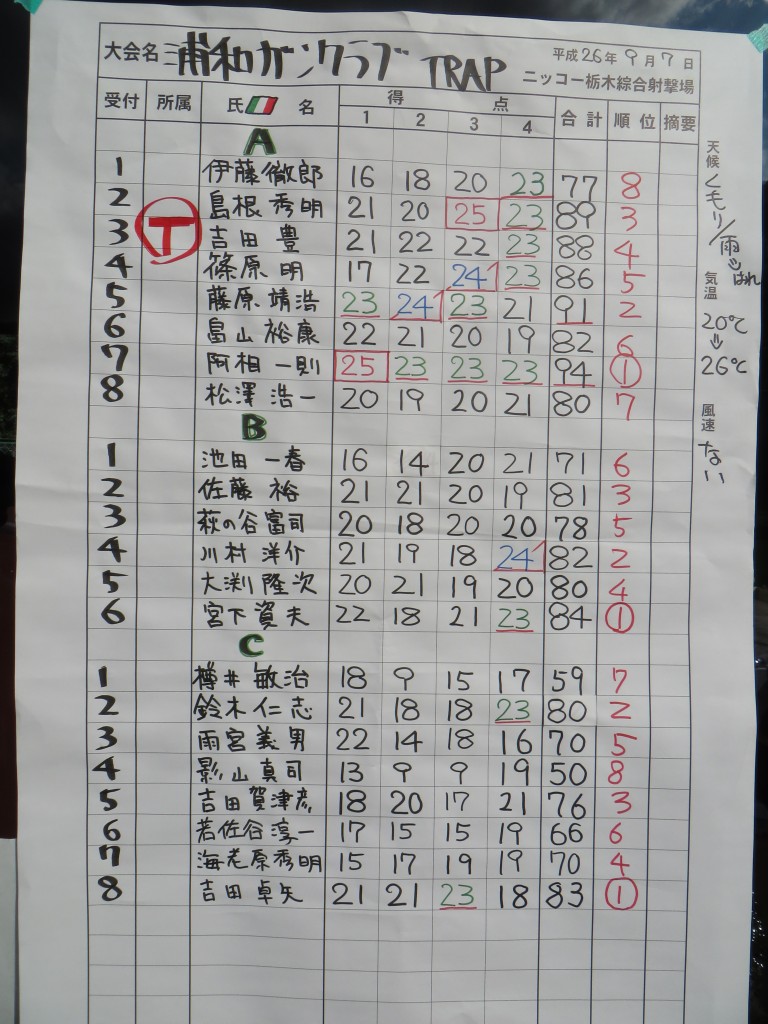 大会名 浦和ガンクラブ TRAP 平成26年9月7日
ニッコー栃木綜合射撃場
受付 所属 氏 名 得 点 合計 順位 摘要
1 2 3 4
A
1 伊藤徹郎 16 18 20 23 77 8
2 島根秀明 21 20 25 23 89 3
3 T 吉田豊 21 22 22 23 88 4
4 篠原明 17 22 24 23 86 5
5 藤原靖浩 23 24 23 21 91 2
6 畠山裕康 22 21 20 19 82 6
7 阿相一則 25 23 23 23 94 1
8 松澤浩一 20 19 20 21 80 7
B
1 池田一春 16 14 20 21 71 6
2 佐藤裕 21 21 20 19 81 3
3 萩の谷富司 20 18 20 20 78 5
4 川村洋介 21 19 18 24 82 2
5 大渕隆次 20 21 19 20 80 4
6 宮下資夫 22 18 21 23 84 1
C
1 樽井敏治 18 9 15 17 59 7
2 鈴木仁志 21 18 18 23 80 2
3 雨宮義男 22 14 18 16 70 5
4 影山真司 13 9 9 19 50 8
5 吉田賀津彦 18 20 17 21 76 3
6 若佐谷淳一 17 15 15 19 66 6
7 海老原秀明 15 17 19 19 70 4
8 吉田卓矢 21 21 23 18 83 1
天候 くもり/雨→はれ
気温 20℃
↓
26℃
風速 ない